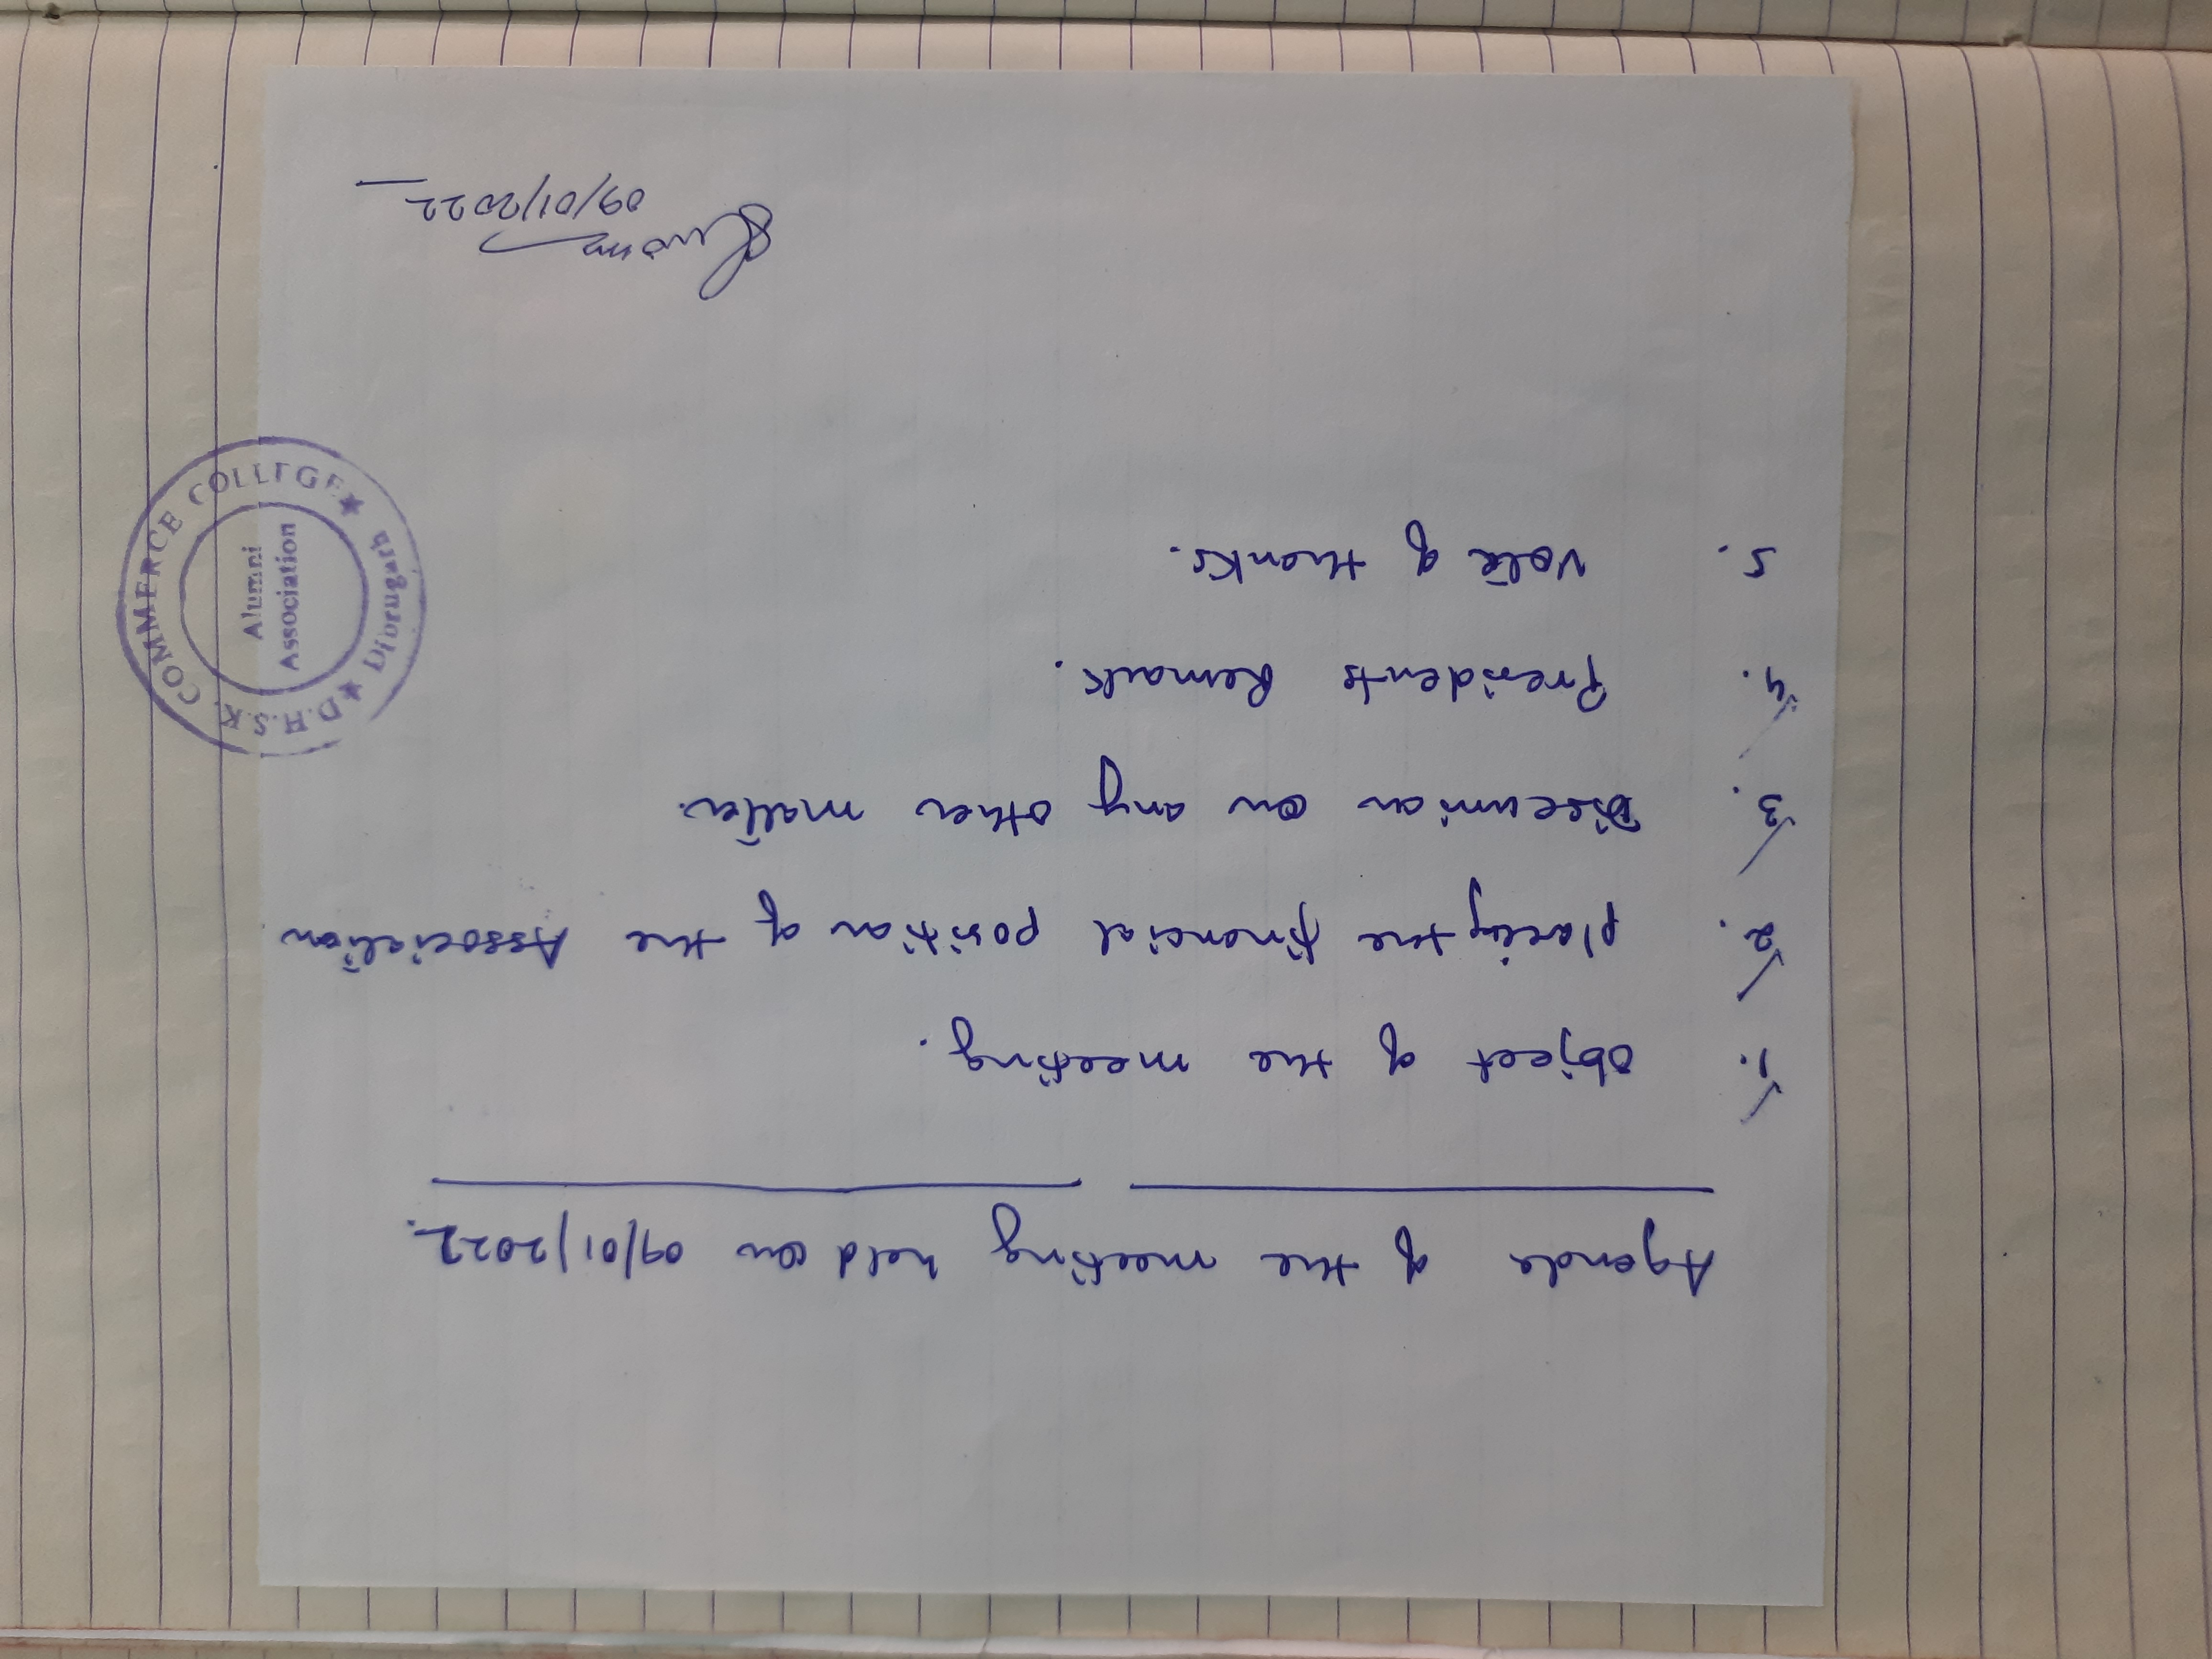 Agenda of the meeting held on 09/01/2022.
1. Object of the meeting.
2. placing the financial position of the Association
3. Discussion on any other matter.
4. Presidents Remark.
5. Vote of thanks.
09/01/2022
D.H.S.K. COMMERCE COLLEGE ★ Dibrugarh ★
Alumni
Association